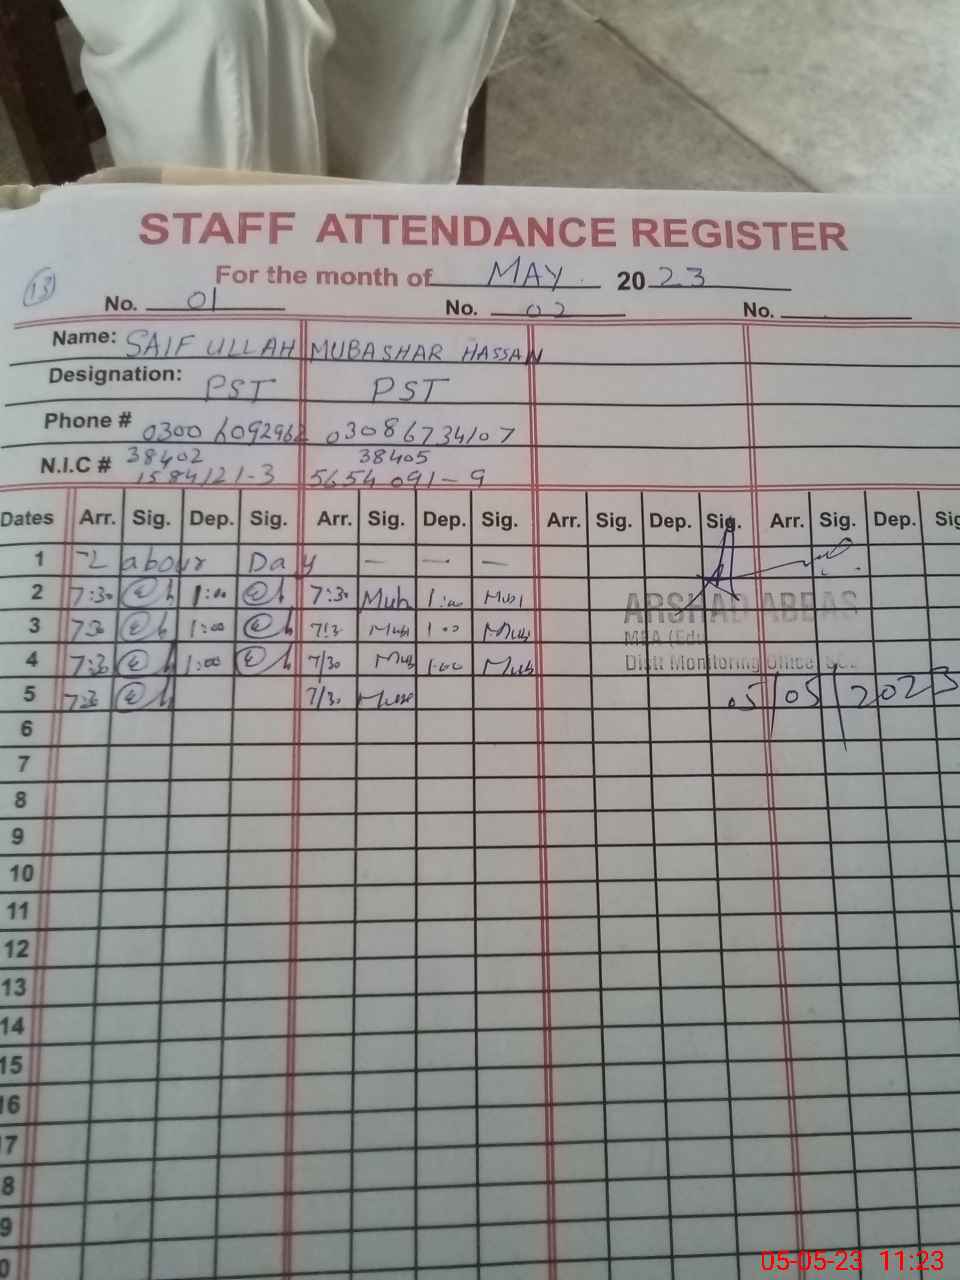 STAFF ATTENDANCE REGISTER
For the month of MAY. 2023
13
No. 01 No. 02 No.
Name: SAIF ULLAH MUBASHAR HASSAN
Designation: PST PST
Phone # 0300 6092962 03086734107
38402 38405
N.I.C # 1584121-3 5654091-9
Dates Arr. Sig. Dep. Sig. Arr. Sig. Dep. Sig. Arr. Sig. Dep. Sig. Arr. Sig. Dep. Sig
1 Labour Day — — —
2 7:30 1:00 7:30 Mub 1:00 Mub
3 730 1:00 7:3 Mub 1:00 Mub
ARSHAD ABBAS
MEA (Edu
4 7:30 1:00 7/30 Mub 1:00 Mub
Distt Monitoring Office
5 7:30 7/30 05/05/2023
6
7
8
9
10
11
12
13
14
15
16
17
8
9
0
05-05-23 11:23